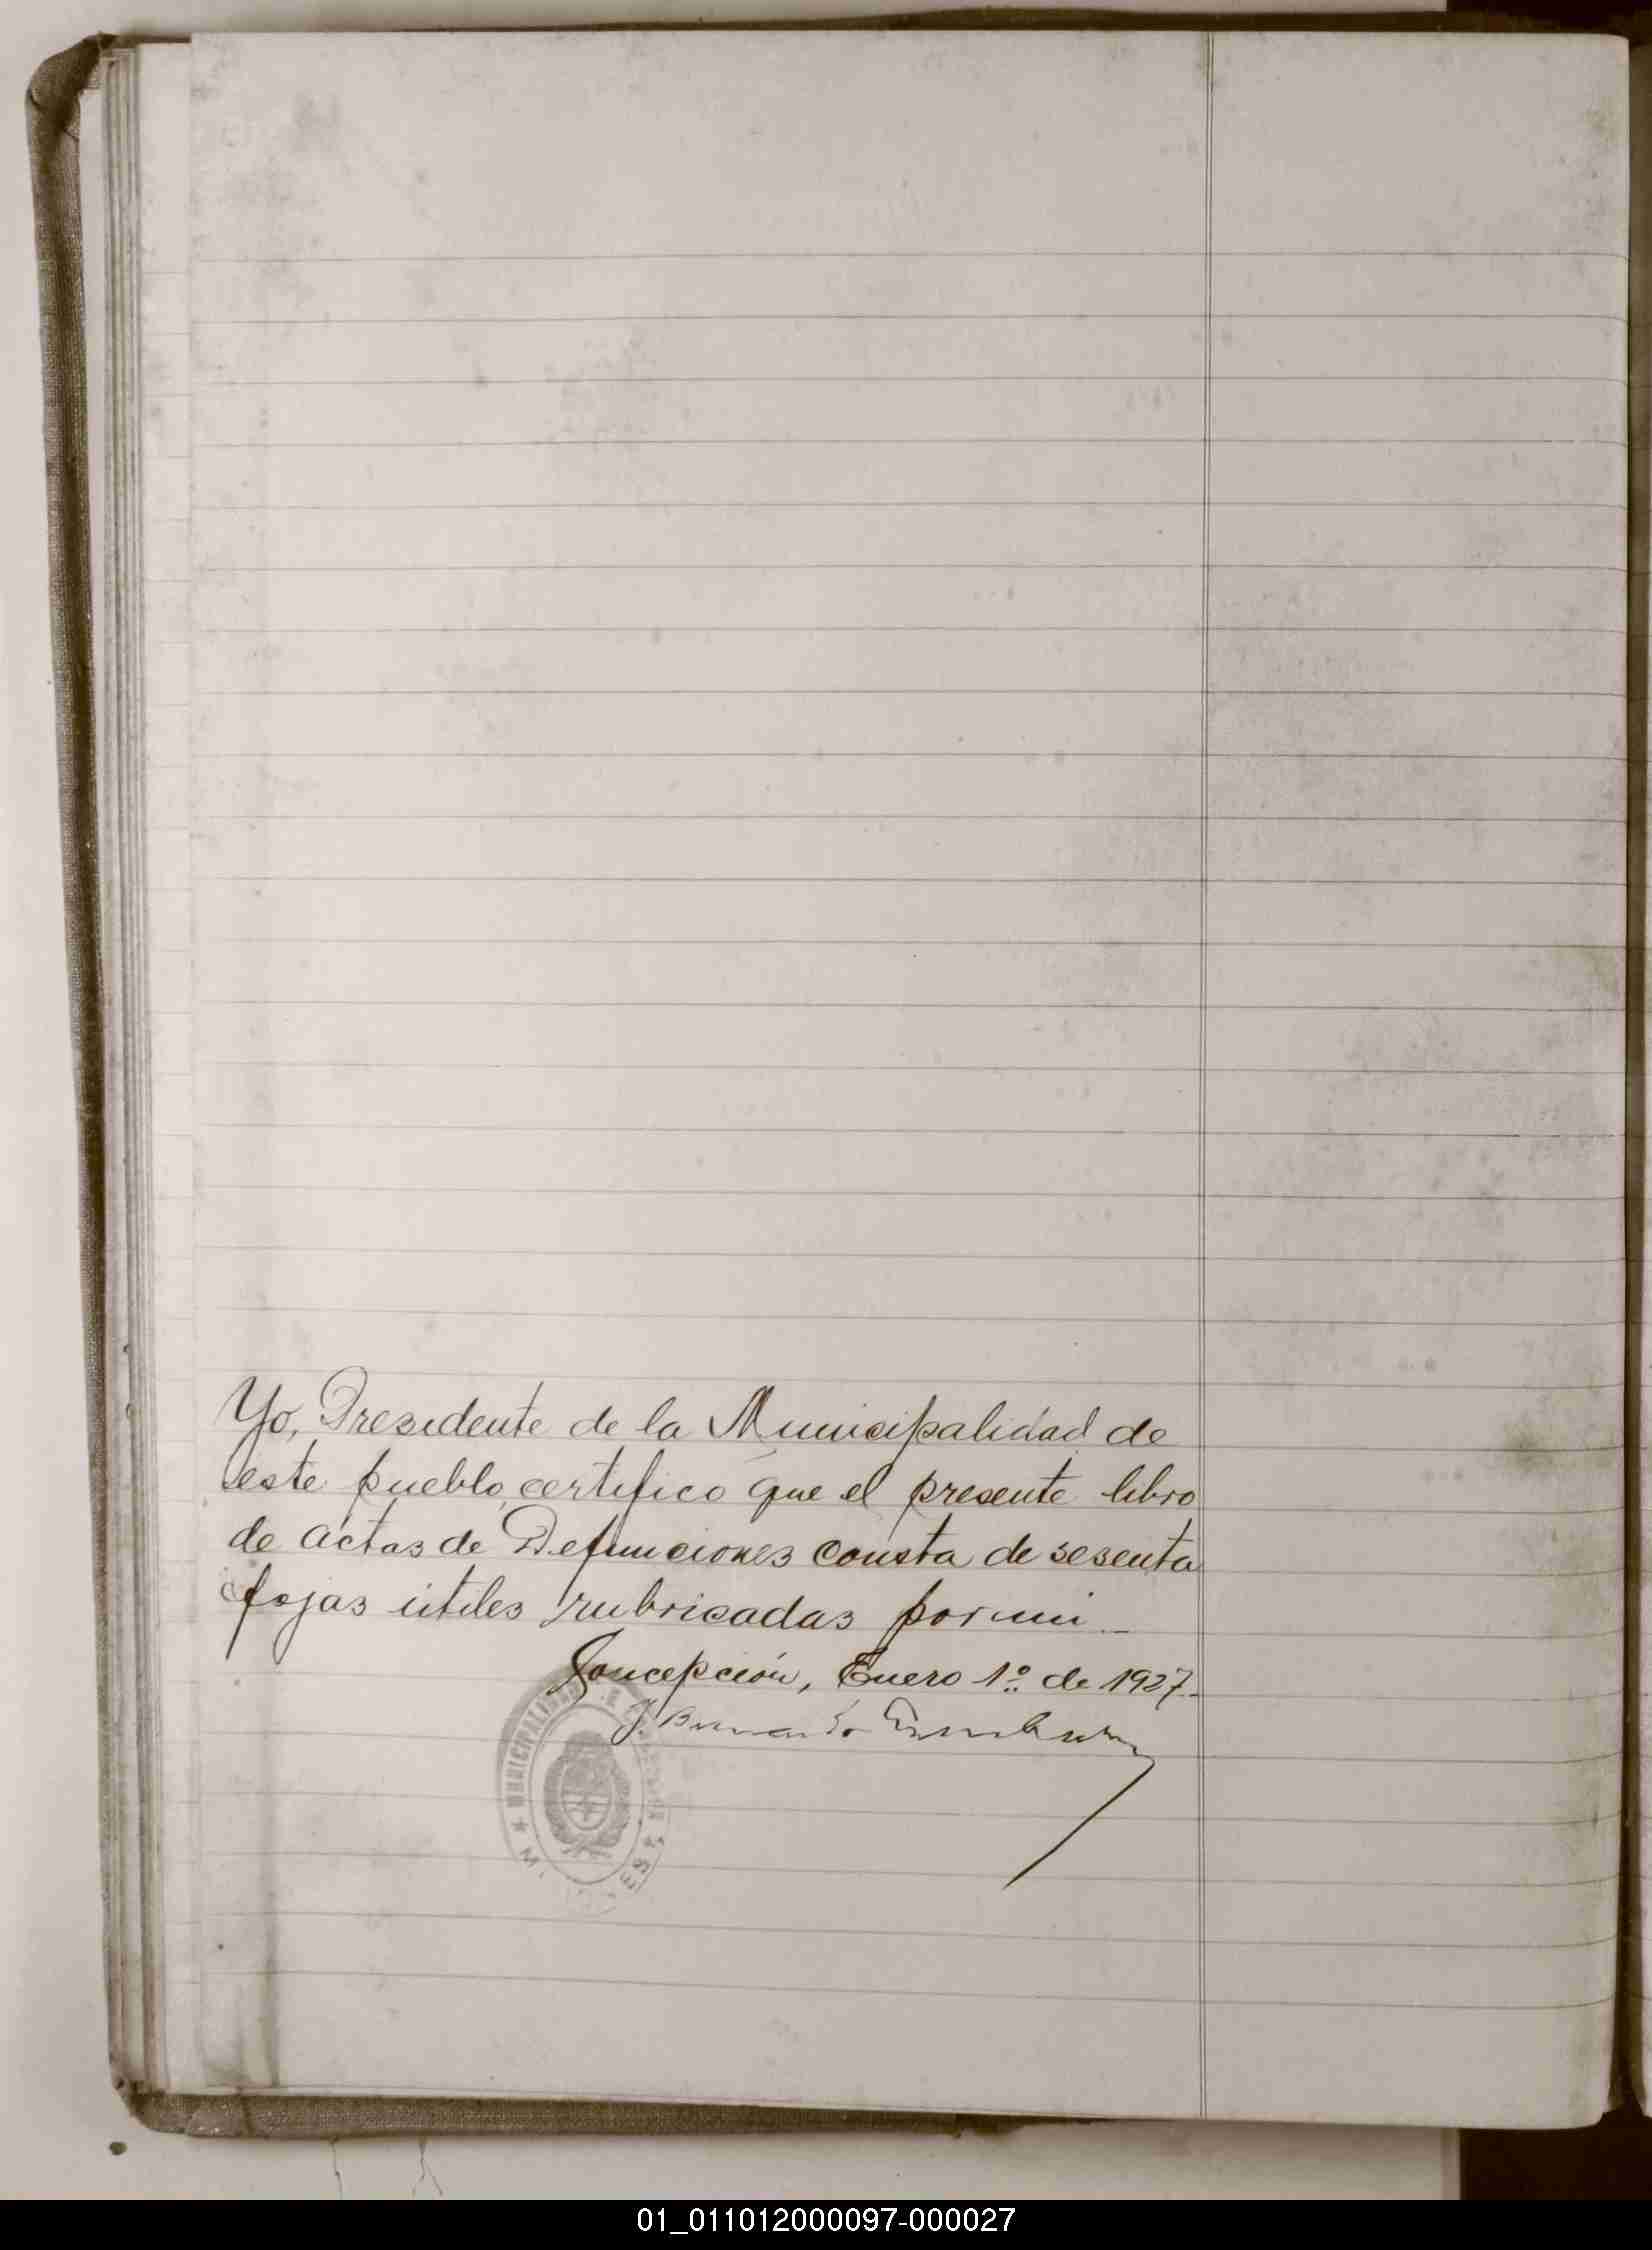 Yo, Presidente de la Municipalidad de
este pueblo, certifico que el presente libro
de actas de Defunciones consta de sesenta
fojas útiles rubricadas por mi
Concepción, Enero 1º de 1927.
J. Bernardo
MUNICIPALIDAD
01_011012000097-000027